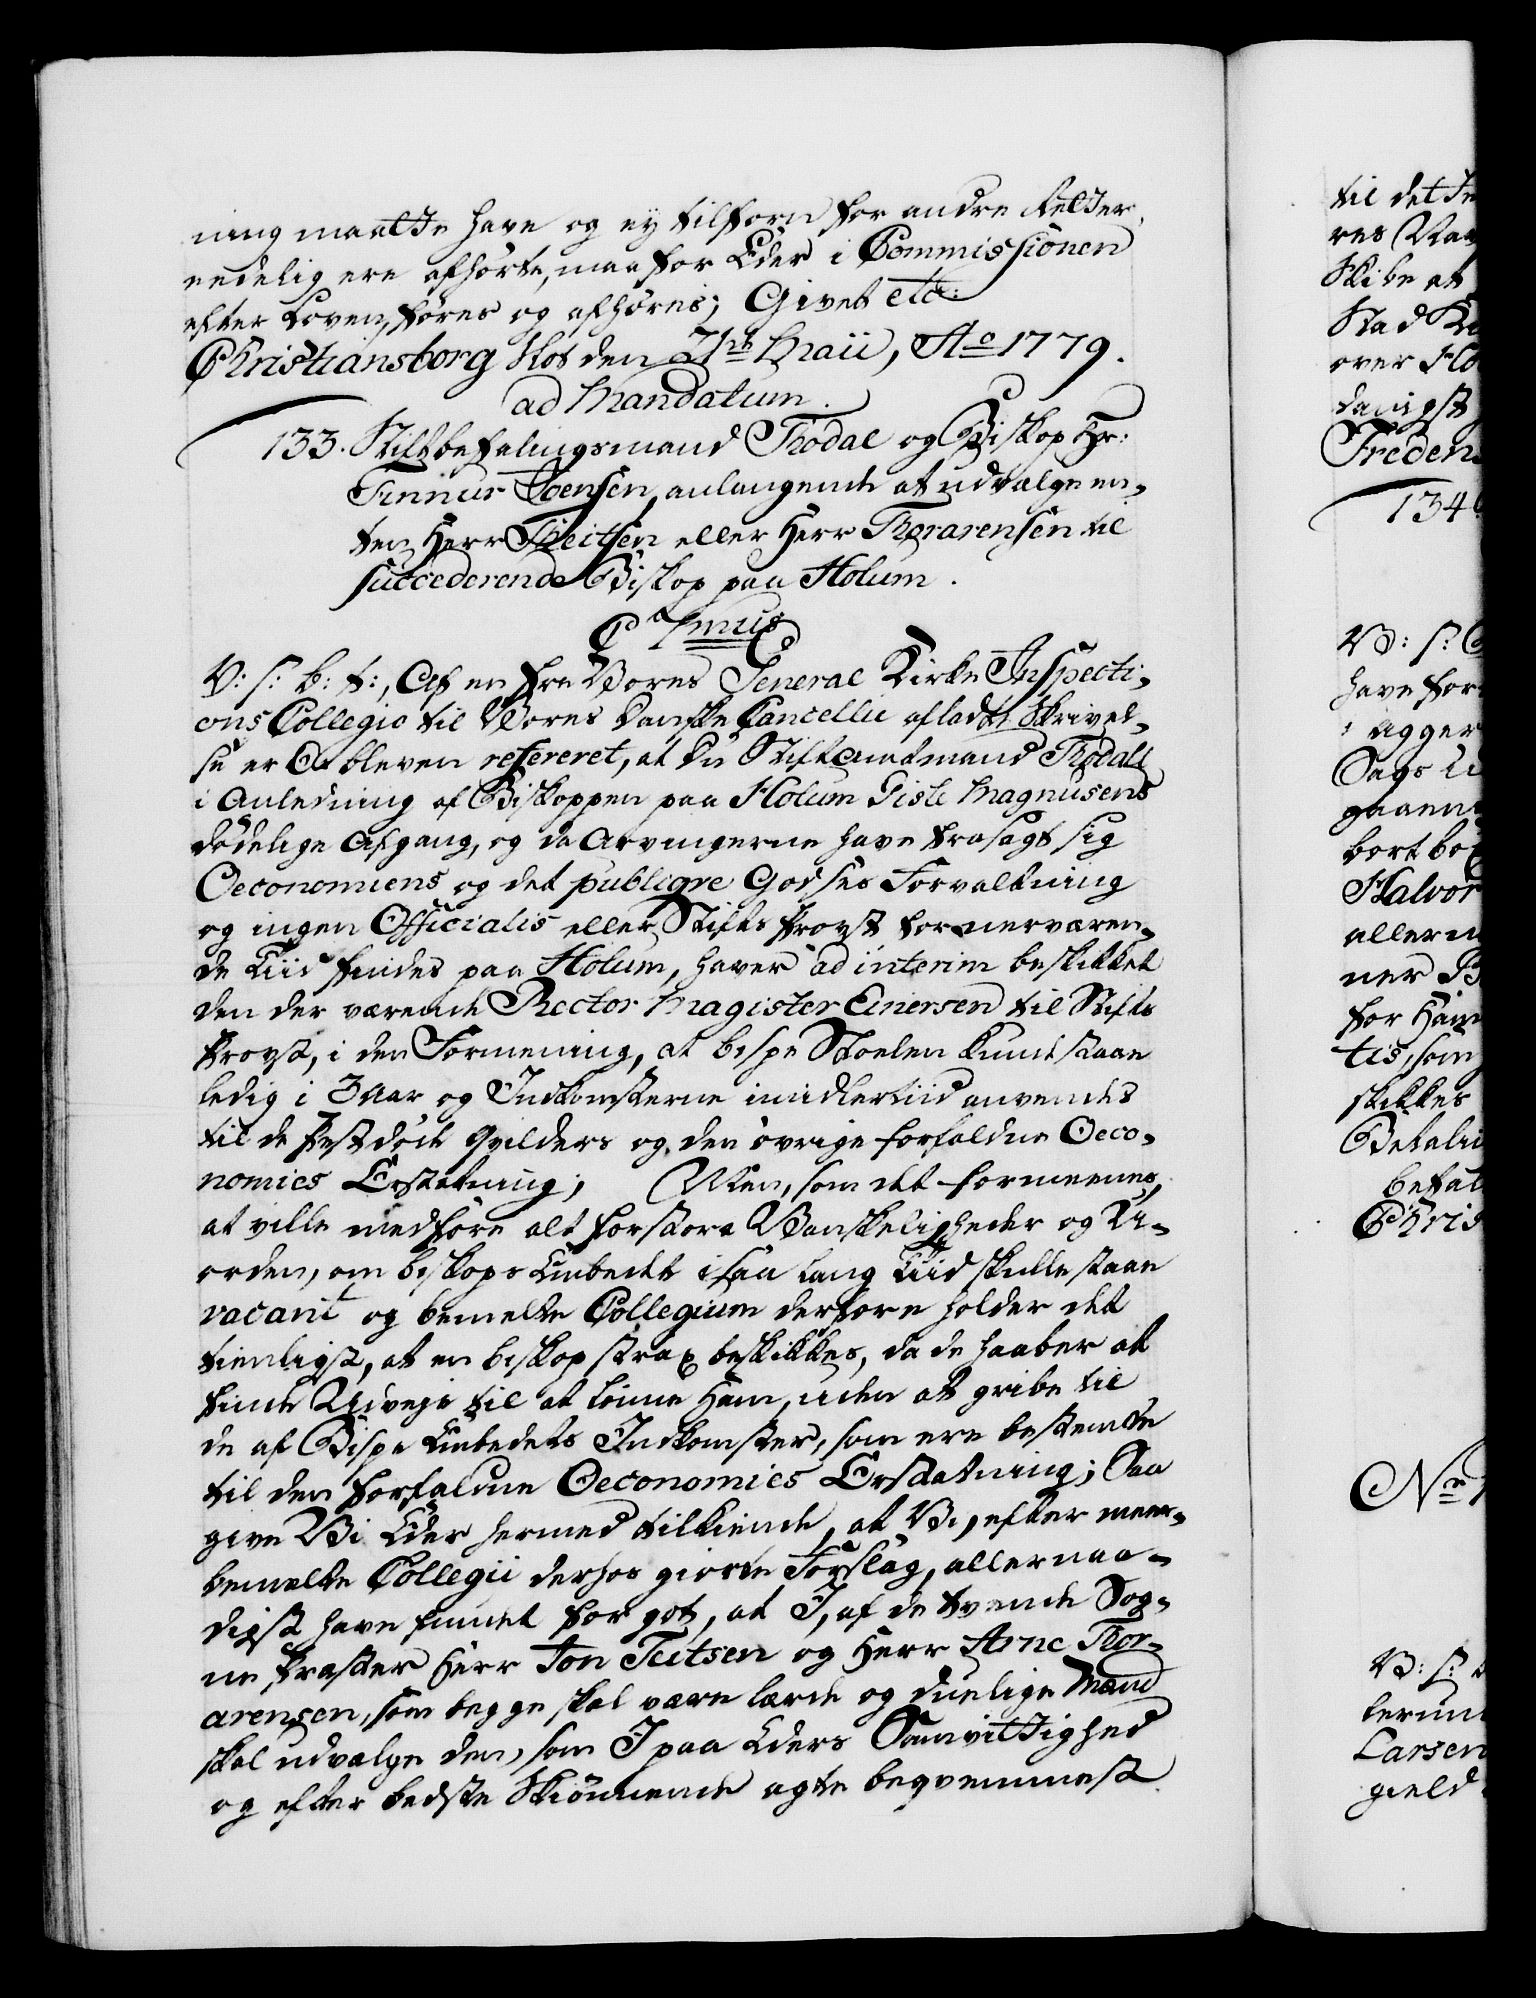 ning maatte have og ey tilforn for andre Retter
endelig ere afhørte, maa for Eder i Commissionen
efter Loven, føres og afhøres; Givet etc:
Christiansborg Slot den Maii, Ao 1779.
ad Mandatum.
133. Stiftbefalingsmand Thodal og Biskop Hr:
Finnur Joensen, anlangende at udvælge en¬
ten Herr Theitsen eller Herr Thorarensen til
succederende Biskop paa Holum.
C 7mus
V: s: b: t:, Af en fra Vores General Kirke Inspecti¬
ons Collegio til Vores Danske Cancellie afladt Skrivel¬
se er Os bleven refereret, at Du Stiftamtmand Thodall
i Anledning af Biskoppen paa Holum Gisle Magnusens
dødelige Afgang, og da Arvingerne have frasagt sig
Oeconomiens og det publiqve Godses Forvaltning
og ingen Officialis eller Stifts Provst for nerværen¬
de Tiid findes paa Holum, haver ad interim beskikket
den der værende Rector Magister Einersen til Stifts
Provst, i den Formening, at bispe Stoelen kunde staae
ledig i 3 Aar og Indkomsterne imidlertiid anvendes
til de Pestdøde Qvilders og den øvrige forfaldne Oeco¬
nomies Erstatning; Men, som det formeenes,
at ville medføre alt for store Vanskeligheder og U¬
orden, om biskops Embedet i saa lang Tiid skulle staae
vacant og bemelte Collegium derfore holder det
tienligst, at en biskop strax beskikkes, da de haaber at
finde Udveje til at lønne Ham, uden at gribe til
de af Bispe Embedets Indkomster, som ere bestemte
til den forfaldne Oeconomies Erstatning; Saa
give Vi Eder hermed tilkiende, at Vi, efter meer¬
bemelte Collegii derhos giorte Forslag, allernaa¬
digst have fundet for got, at I, af de tvende Sog¬
ne Præster Herr Jon Teitsen og Herr Arne Thor¬
arensen, som begge skal være lærde og duelige Mænd
skal udvælge den, som I paa Eders Samvittighed
og efter bedste Skiønnende agte beqvemmest
til dette
Skibe at
Stad
over
Freden
134
V: s:
have for
Sags
bort
Halvor
ner
for Ham
tis, som
skikkes
Betalin
befal
Chris
No
V: s:
Larsen
gield